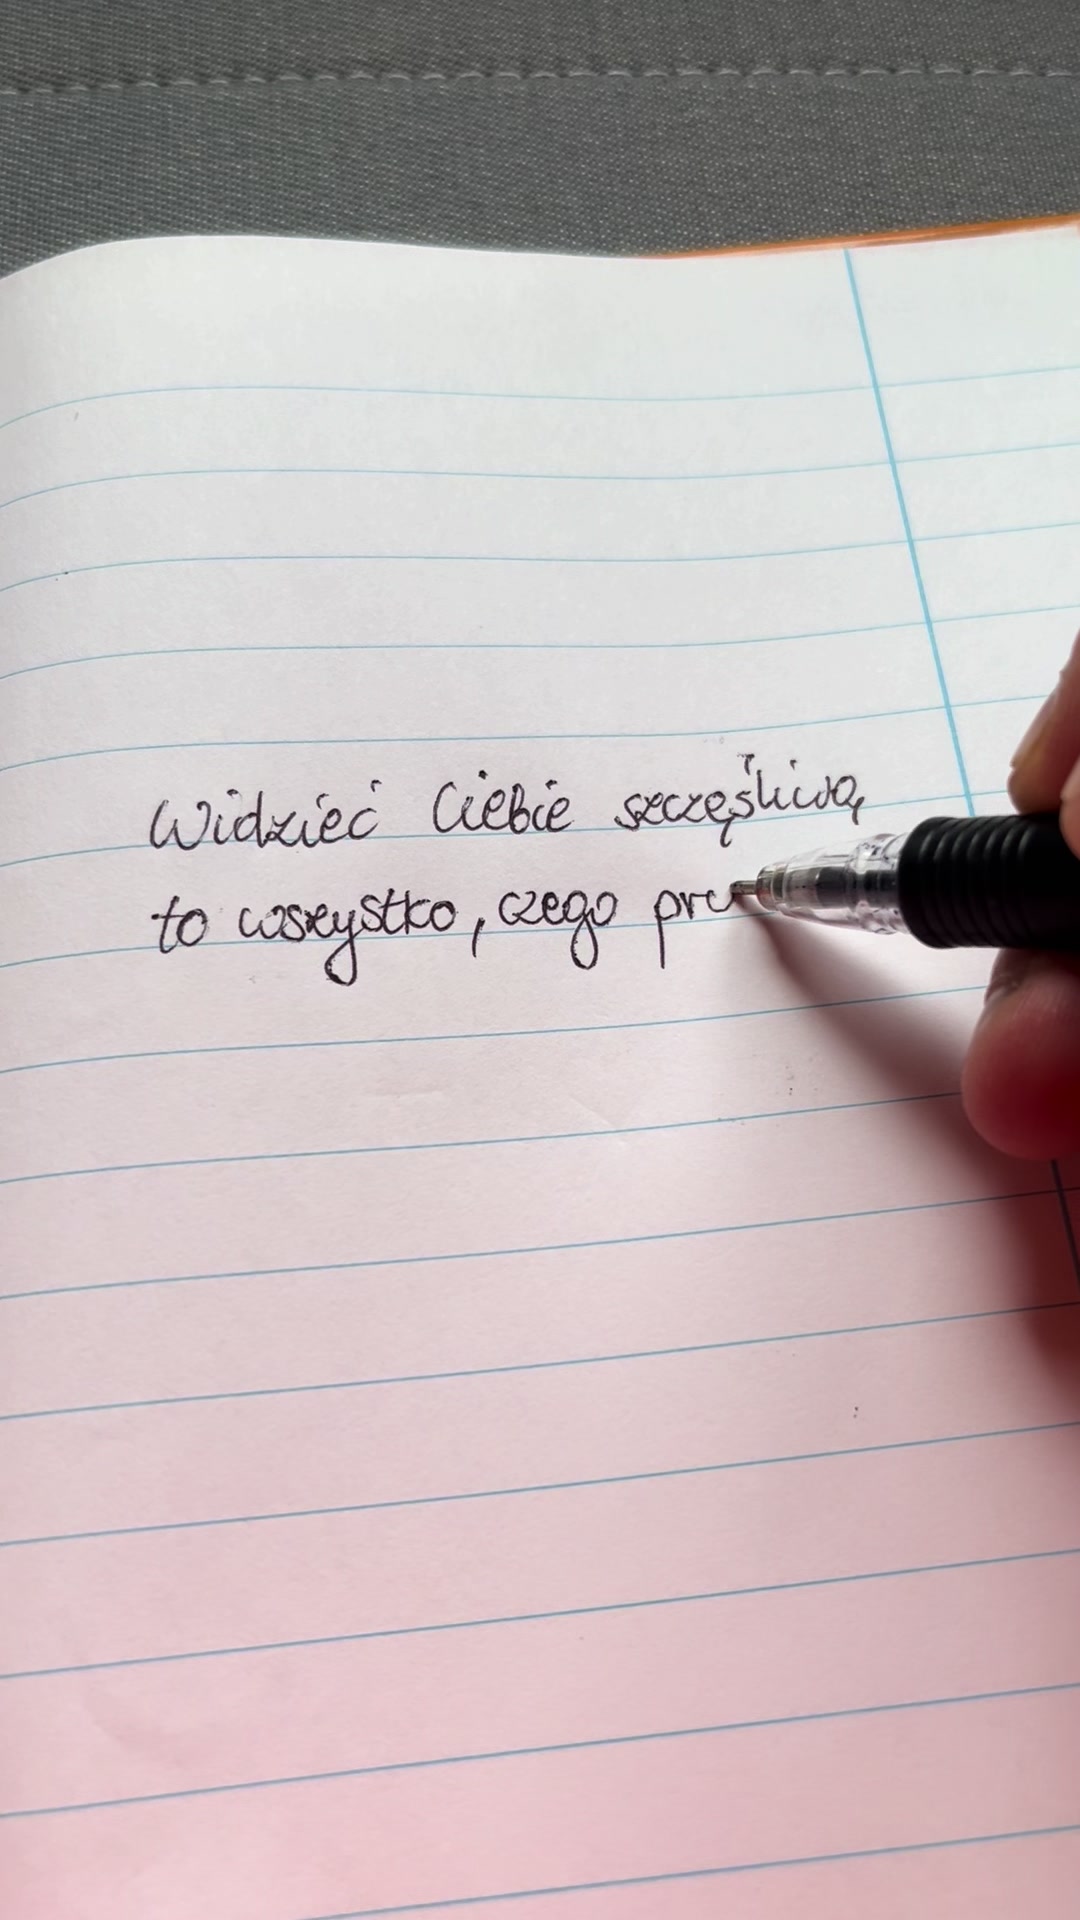 Widzieć Ciebie szczęśliwą
to wszystko, czego pra